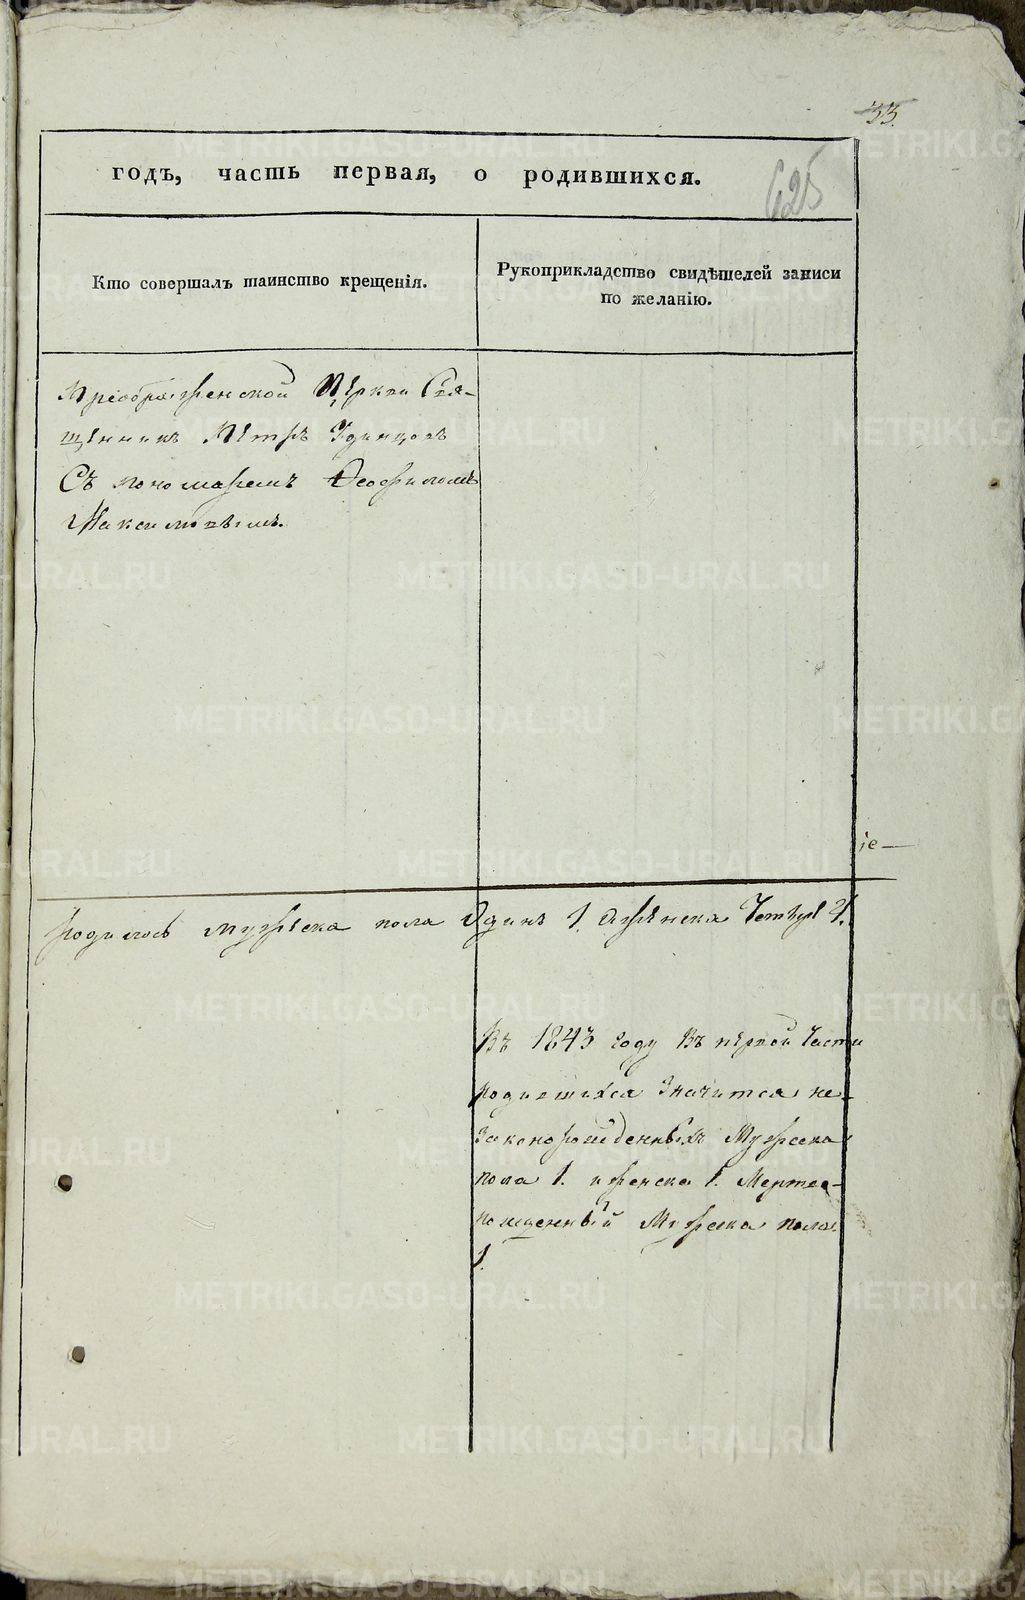 33.
годъ, часть первая, о родившихся.
625
Кто совершалъ таинство крещенія.
Рукоприкладство свидѣтелей записи
по желанію.
Преображенской Церкви Свя-
щенникъ Петръ Удинцовъ
Съ пономаремъ Ѳеофиломъ
Максимовымъ.
іе
родилось мужеска пола Одинъ 1. Женска Четыре 4.
Въ 1843 году Въ первой Части
родившихся Значится не-
законорожденныхъ Мужеска
пола 1. и женска 1. Мертво-
рожденный Мужеска пола
1.
METRIKI.GASO-URAL.RU